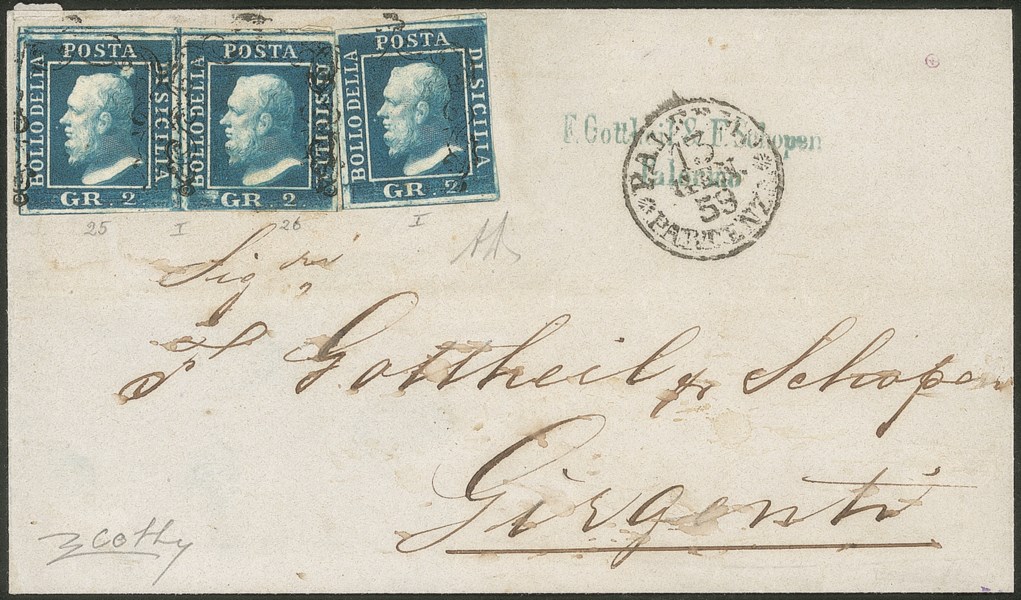 POSTA
BOLLO DELLA
DI SICILIA
GR. 2
POSTA
BOLLO DELLA
DI SICILIA
GR. 2
POSTA
BOLLO DELLA
DI SICILIA
GR. 2
F. Gottheil & F. Schopen
Palermo
59
PARTENZA
25 I 26 I
Sig.ri
F Gottheil & Schopen
Girgenti